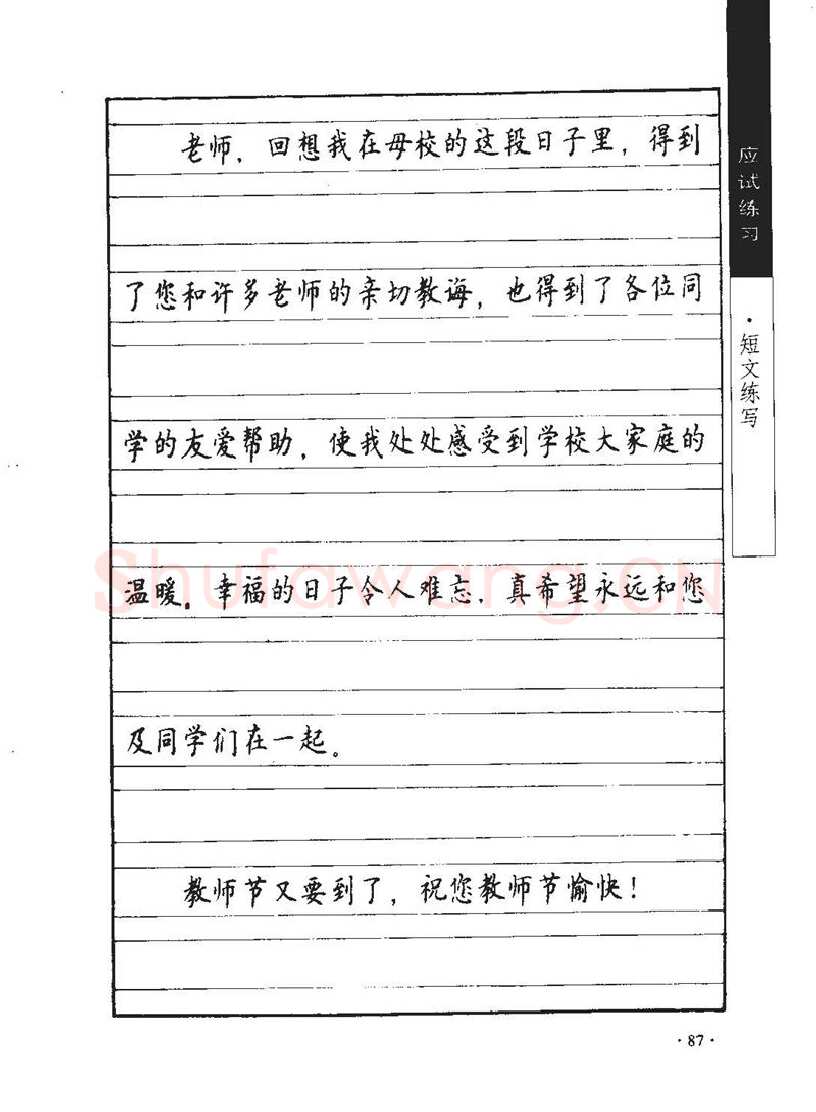 老师，回想我在母校的这段日子里，得到
了您和许多老师的亲切教诲，也得到了各位同
学的友爱帮助，使我处处感受到学校大家庭的
温暖。幸福的日子令人难忘，真希望永远和您
及同学们在一起。
教师节又要到了，祝您教师节愉快！
应试练习
·短文练写
Shufawang.CN
·87·